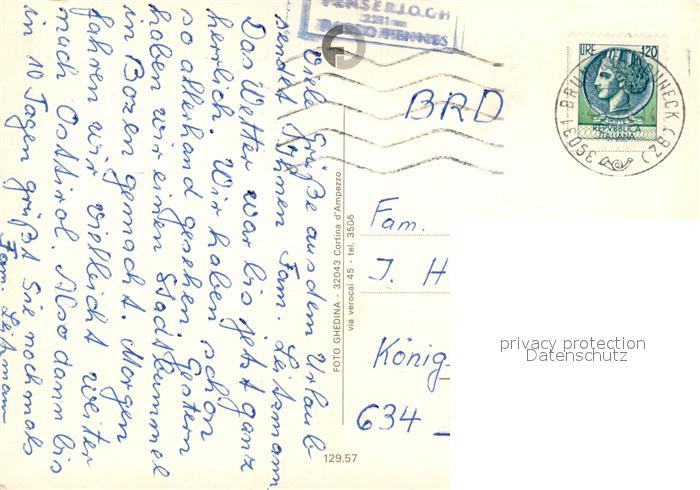 Viele Grüße aus dem Urlaub
sendet Ihnen Fam. Leitzmann.
Das Wetter war bis jetzt ganz
herrlich. Wir haben schon
so allerhand gesehen. Gestern
haben wir einen Stadtbummel
in Bozen gemacht. Morgen
fahren wir vielleicht weiter
nach Osttirol. Also dann bis
in 10 Tagen grüßt Sie nochmals
Fam. Leitzmann
FOTO GHEDINA - 32043 Cortina d'Ampezzo
via verocai 45 - tel. 3505
129.57
BRD
LIRE 120
REPVBBLICA
ITALIANA
39031 BRUNECK (BZ)
Fam.
J. H
König
634
privacy protection
Datenschutz